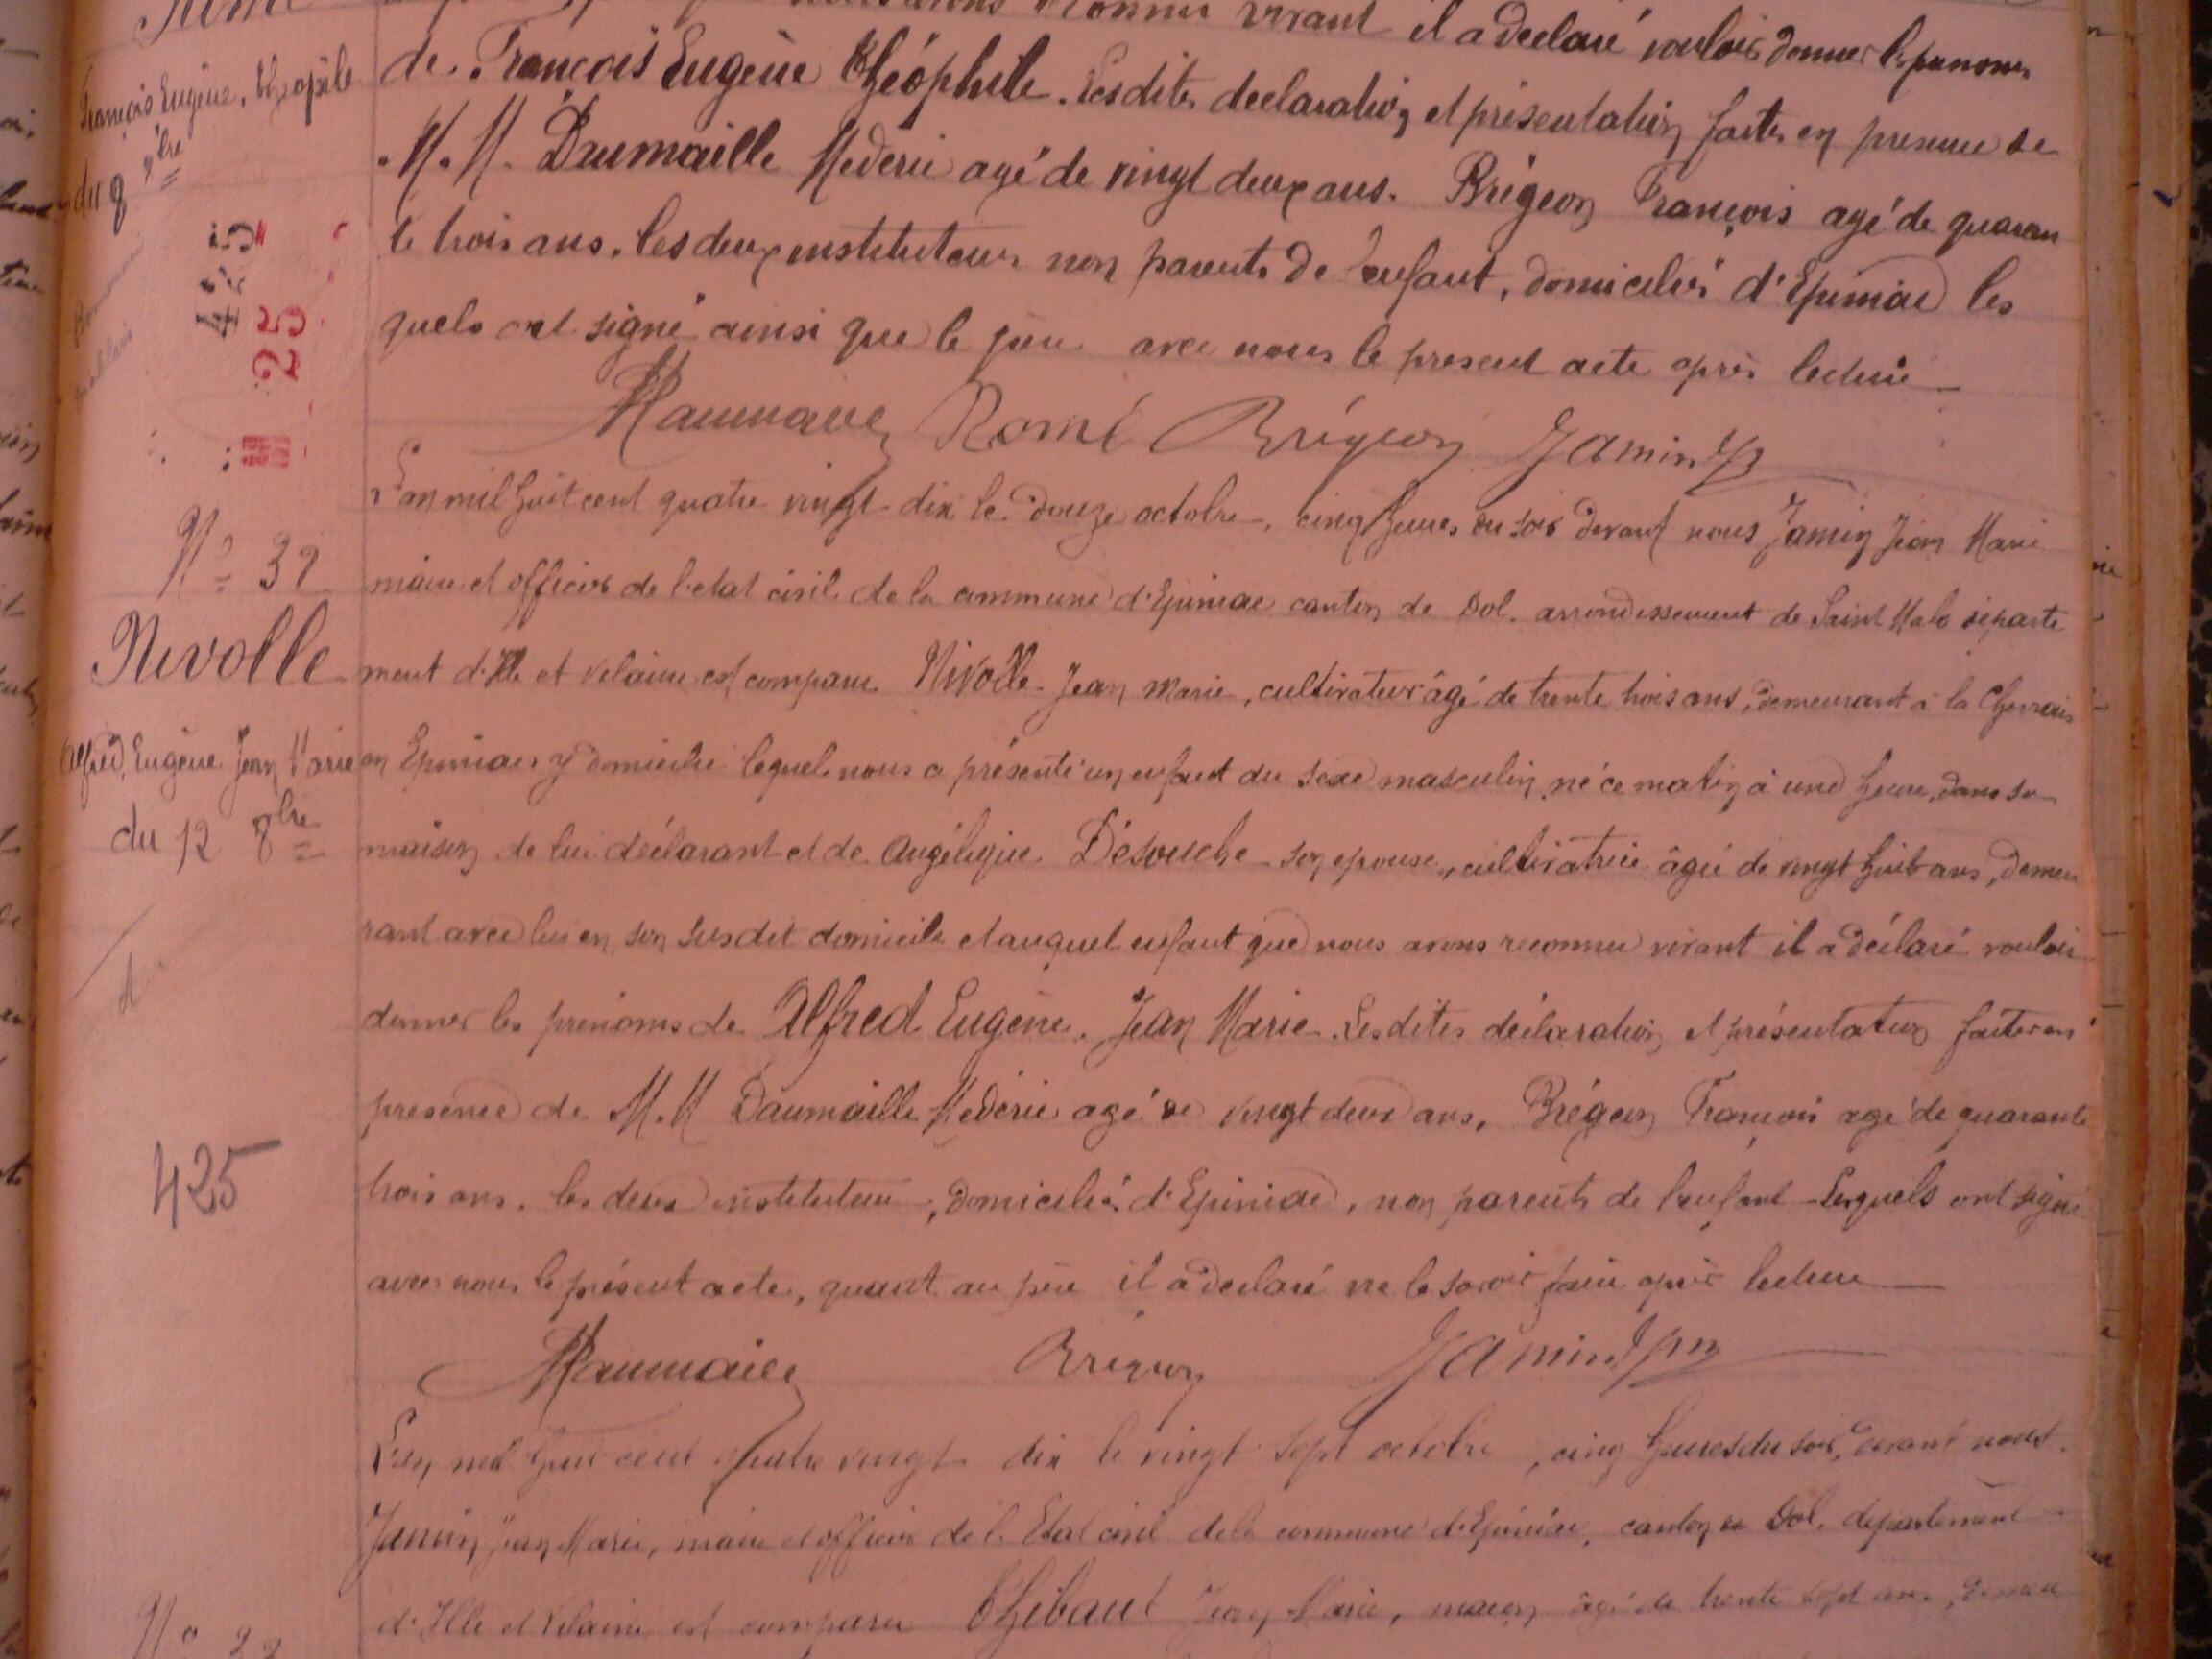 nous avons reconnu vivant il a déclaré vouloir donner les prenoms
François Eugène, Théophile
du 8 9bre
de François Eugène Théophile. Lesdites declaration et présentation faites en presence de
M. M. Daumaille Mederic agé de vingt deux ans. Brégeon François agé de quaran
te trois ans. les deux instituteurs non parents de l'enfant, domiciliés d'Epiniac les
quels ont signé ainsi que le père avec nous le present acte après lecture
Romé Brégeon Jamin
425
25
N° 32
Nivolle
Alfred, Eugène Jean Marie
du 12 8bre
L'an mil huit cent quatre vingt dix le douze octobre, cinq heures du soir devant nous Jamin Jean Marie
maire et officier de l'etat civil de la commune d'Epiniac canton de Dol. arrondissement de Saint Malo departe
ment d'Ille et Vilaine est comparu Nivolle Jean Marie, cultivateur âgé de trente trois ans, demeurant à la
en Epiniac y domicilié lequel nous a présenté un enfant du sexe masculin né ce matin à une heure, dans sa
maison de lui déclarant et de Angélique Désouche son epouse, cultivatrice âgée de vingt huit ans, demeu
rant avec lui en son susdit domicile et auquel enfant que nous avons reconnu vivant il a déclaré vouloir
donner les prénoms de Alfred Eugène. Jean Marie. Lesdites déclaration et présentation faites en
presence de M. M Daumaille Mederic agé de vingt deux ans, Brégeon François agé de quarante
trois ans. les deux instituteurs, domiciliés d'Epiniac, non parents de l'enfant Lesquels ont signé
avec nous le présent acte, quant au père il a declaré ne le savoir faire après lecture
425
Brégeon Jamin
L'an mil huit cent quatre vingt dix le vingt sept octobre, cinq heures du soir, devant nous
Jamin Jean Marie, maire et officier de l'Etat civil de la commune d'Epiniac, canton de Dol, departement
d'Ille et Vilaine est comparu Thébault Jean Marie, maçon âgé de trente sept ans, demeu